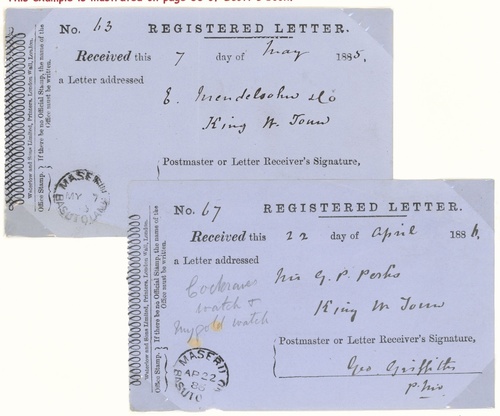 No. 43 REGISTERED LETTER.
Received this 7 day of May 1885,
a Letter addressed
E. Mendelsohn &Co
King W. Town
Postmaster or Letter Receiver's Signature,
Waterlow and Sons Limited, Printers, London Wall, London.
Office Stamp. } If there be no Official Stamp, the name of the Office must be written.
MASERU
MY 7
BASUTOLAND
No. 67 REGISTERED LETTER.
Received this 22 day of April 1886,
a Letter addressed
G. P. Perks
King W Town
Cochranes
watch &
my gold watch
Postmaster or Letter Receiver's Signature,
Geo Griffith
Waterlow and Sons Limited, Printers, London Wall, London.
Office Stamp. } If there be no Official Stamp, the name of the Office must be written.
MASERU
AP 22
86